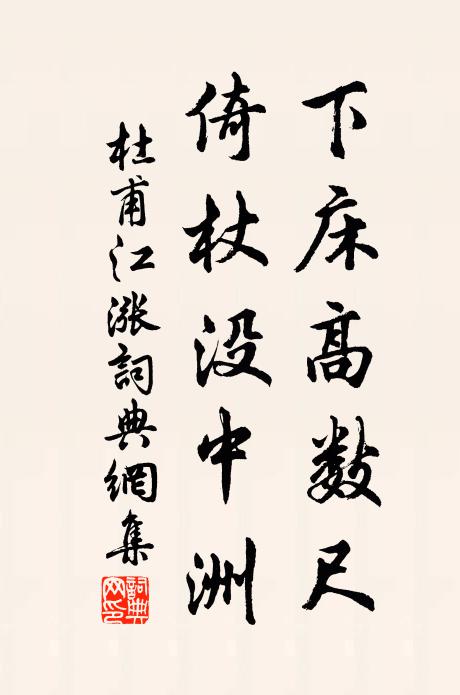 下床高数尺
倚杖没中洲
杜甫江漲詞典網集
詞典
网印